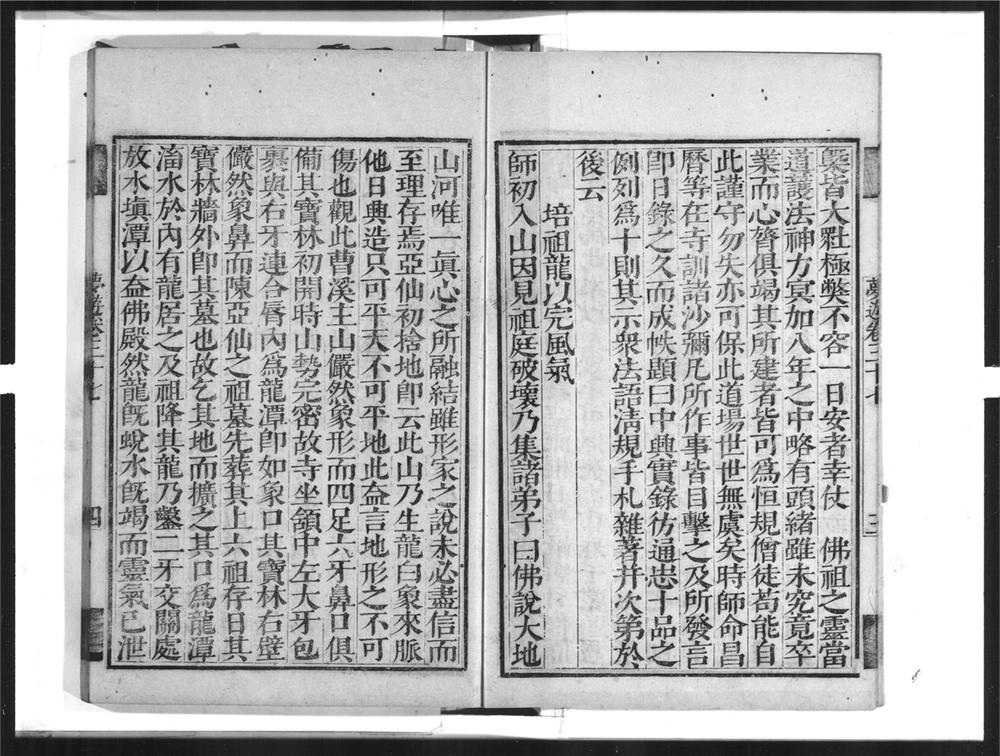 槩皆大壯極弊不容一日安者幸仗　佛祖之靈當
道護法神方冥加八年之中略有頭緒雖未究竟卒
業而心膂俱竭其所建者皆可為恒規僧徒苟能自
此謹守勿失亦可保此道場世世無虞矣時師命昌
曆等在寺訓諸沙彌凡所作事皆目擊之及所發言
卽日錄之久而成帙題曰中興實錄彷通忠十品之
例列為十則其示衆法語淸規手札雜著并次第於
後云
培祖龍以完風氣
師初入山因見祖庭破壞乃集諸弟子曰佛說大地
夢遊卷三十七
三
山河唯一眞心之所融結雖形家之說未必盡信而
至理存焉亞仙初捨地卽云此山乃生龍白象來脈
他日興造只可平天不可平地此益言地形之不可
傷也觀此曹溪主山儼然象形而四足六牙鼻口俱
備其寶林初開時山勢完密故寺坐頷中左大牙包
裹與右牙連合脣內為龍潭卽如象口其寶林右壁
儼然象鼻而陳亞仙之祖墓先葬其上六祖存日其
寶林牆外卽其墓也故乞其地而擴之其口為龍潭
滀水於內有龍居之及祖降其龍乃鑿二牙交關處
放水塡潭以益佛殿然龍旣蛻水旣竭而靈氣已泄
夢遊卷三十七
四